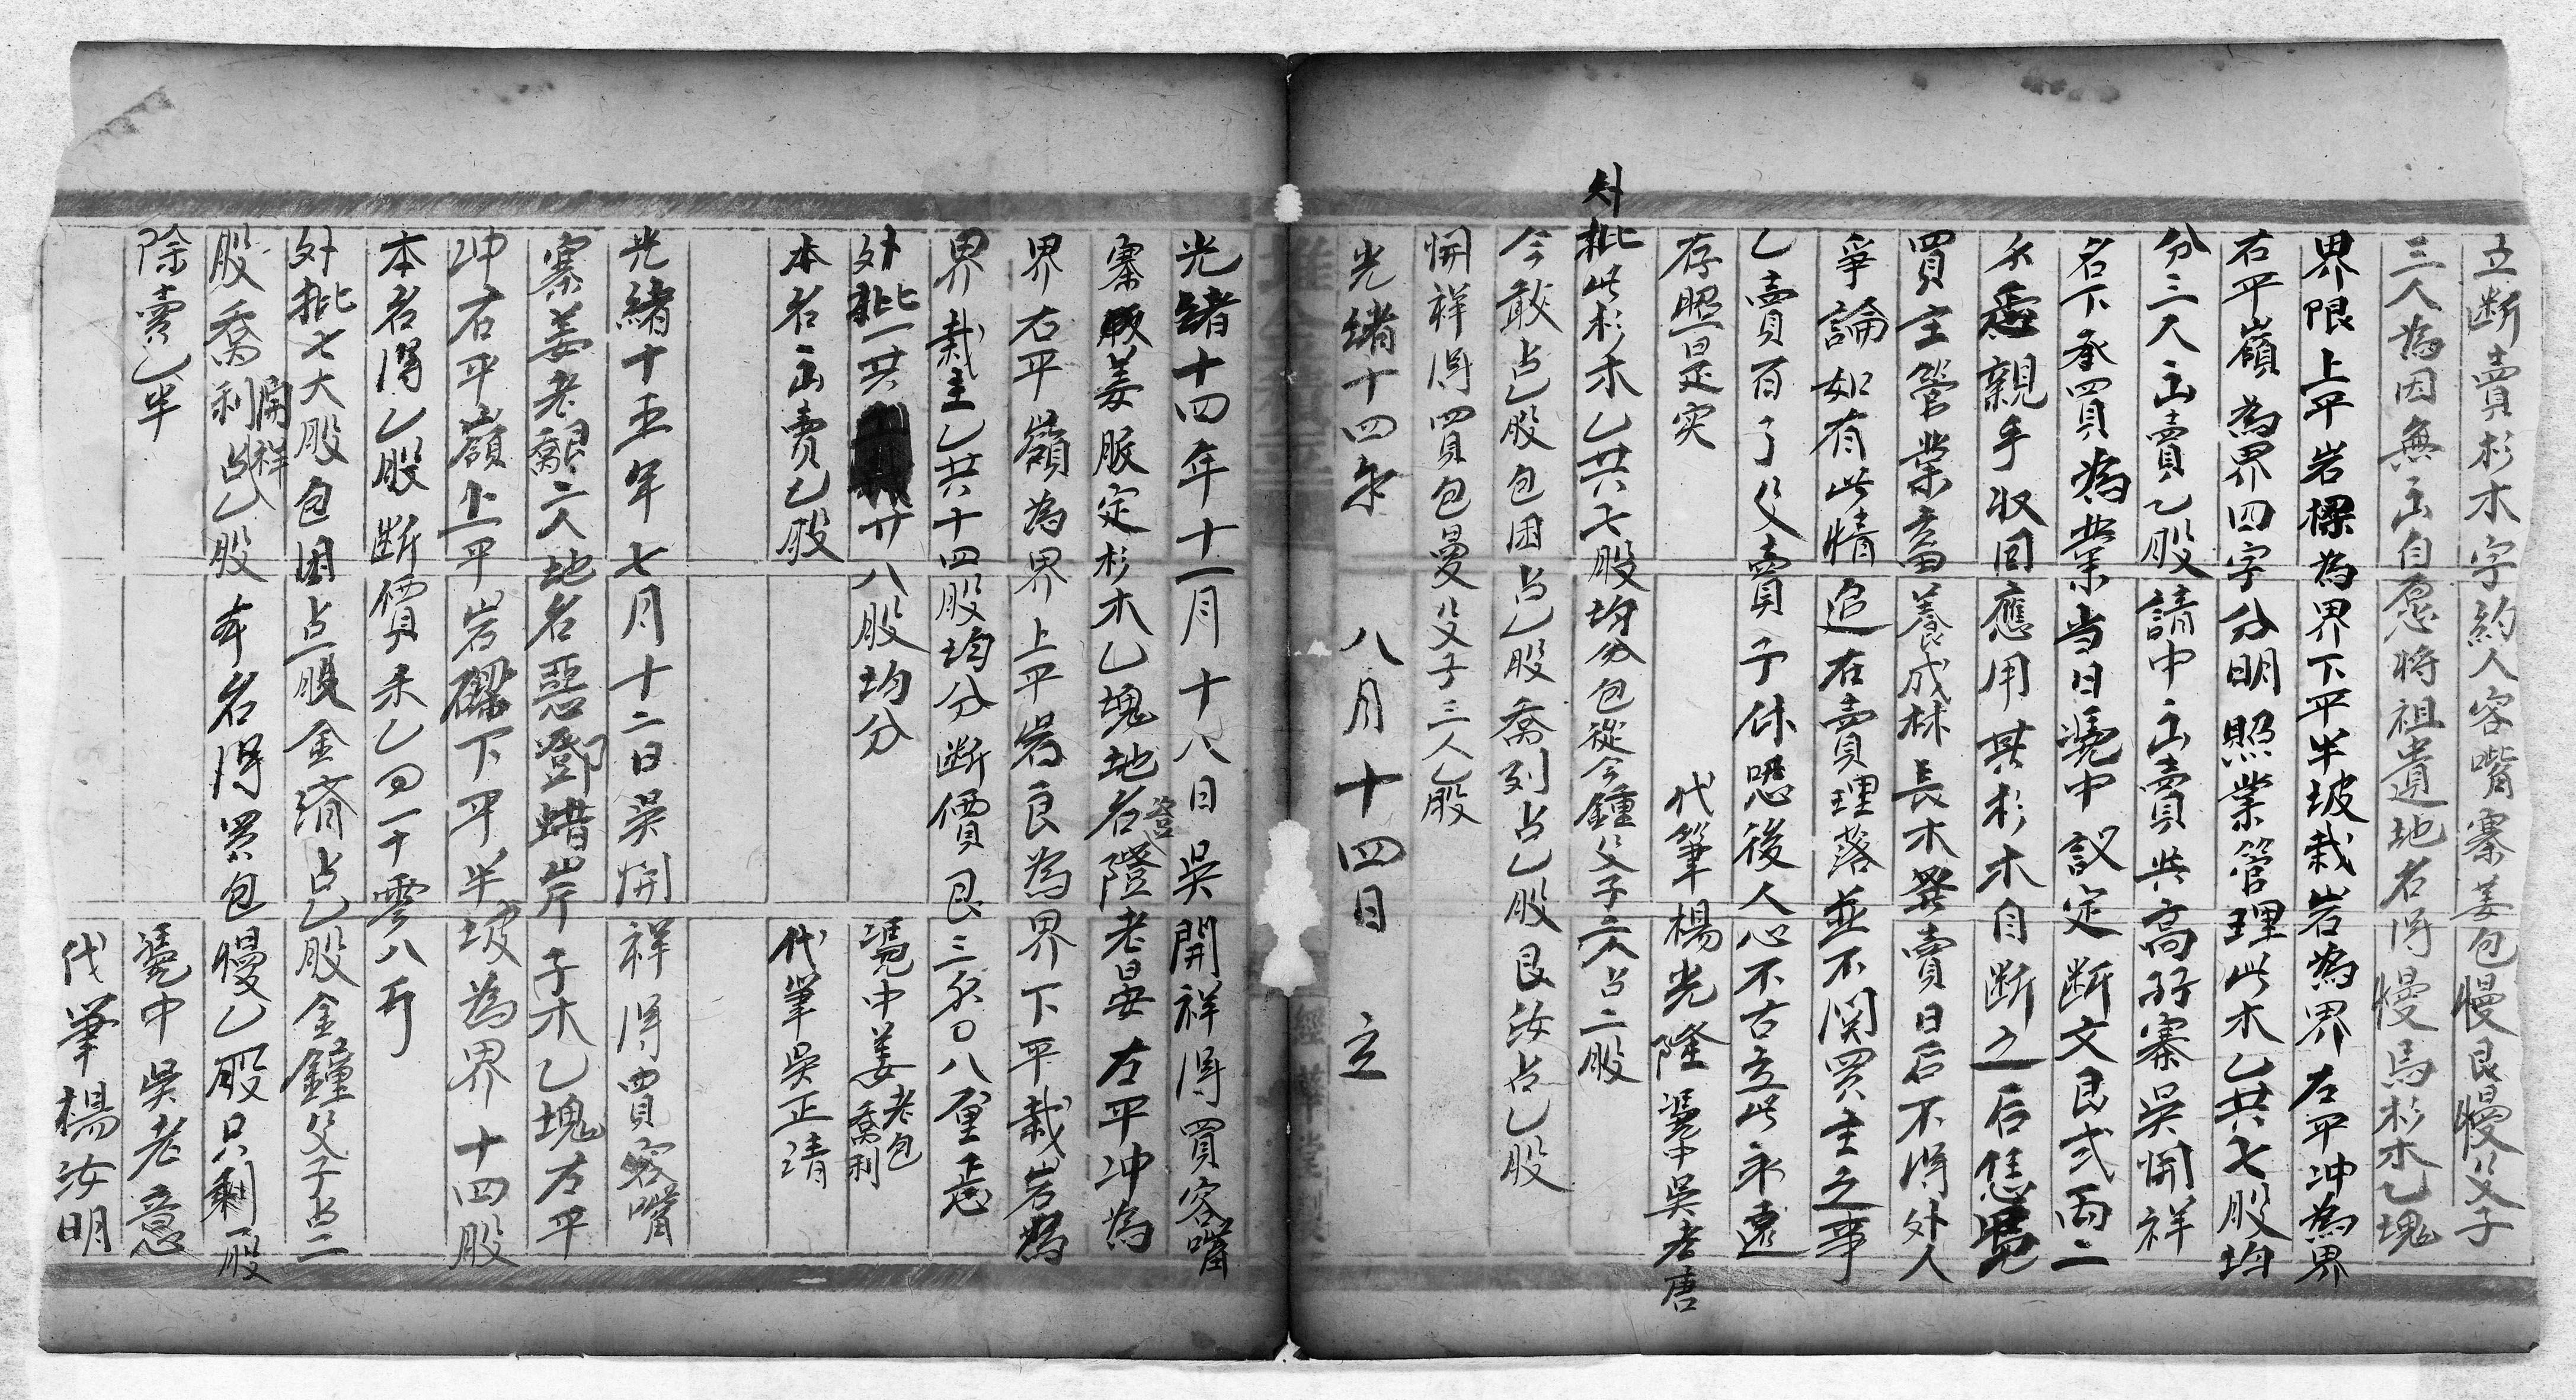 立断賣杉木字約人容嘴寨姜包慢艮慢父子
三人為因無出自愿將祖遺地名得慢馬杉木乙塊
界限上平岩樑為界下平半坡栽岩為界左平冲為界
右平嶺為界四字分明照業管理此木乙共七股均
分三人出賣乙股請中出賣與高好寨吳開祥
名下承買為業当日凭中議定断文艮弍両二
不愿親手收回應用其杉木自断之后恁凴
買主管業畜養成林長木發賣日后不得外人
爭論如有此情追在賣理落並不関買主之事
乙賣百了父賣子休恐後人心不古立此永遠
存照是实 代筆楊光隆 凴中吳老唐
外批此杉木乙共七股均分包從今鍾父子三人占二股
今敢占乙股包困占乙股喬列占乙股艮汝占乙股
開祥得買包曼父子三人乙股
光緒十四年 八月十四日 立
光緒十四年十一月十八日吳開祥得買容嘴
寨姜服定杉木乙塊地名登隥老晏左平冲為
界右平嶺為界上平岩良為界下平栽岩為
界栽主乙共十四股均分断價艮三不〇八厘
外批一共廿八股均分 凴中姜老包喬利
本名出賣乙股 代筆吳正清
光緒十五年七月十二日吳開祥得買容嘴
寨姜老喬二人地名惡鄧蜡岸子木乙塊左平
冲右平嶺上平岩磉下平半坡為界十四股
本名得乙股断價禾乙〇一十零八斤
外批七大股包困占一股金濟占乙股金鐘父子占二
股喬利開祥占乙股本名得買包慢乙股只剩一股
除賣乙半 凴中吳老意
代筆楊汝明